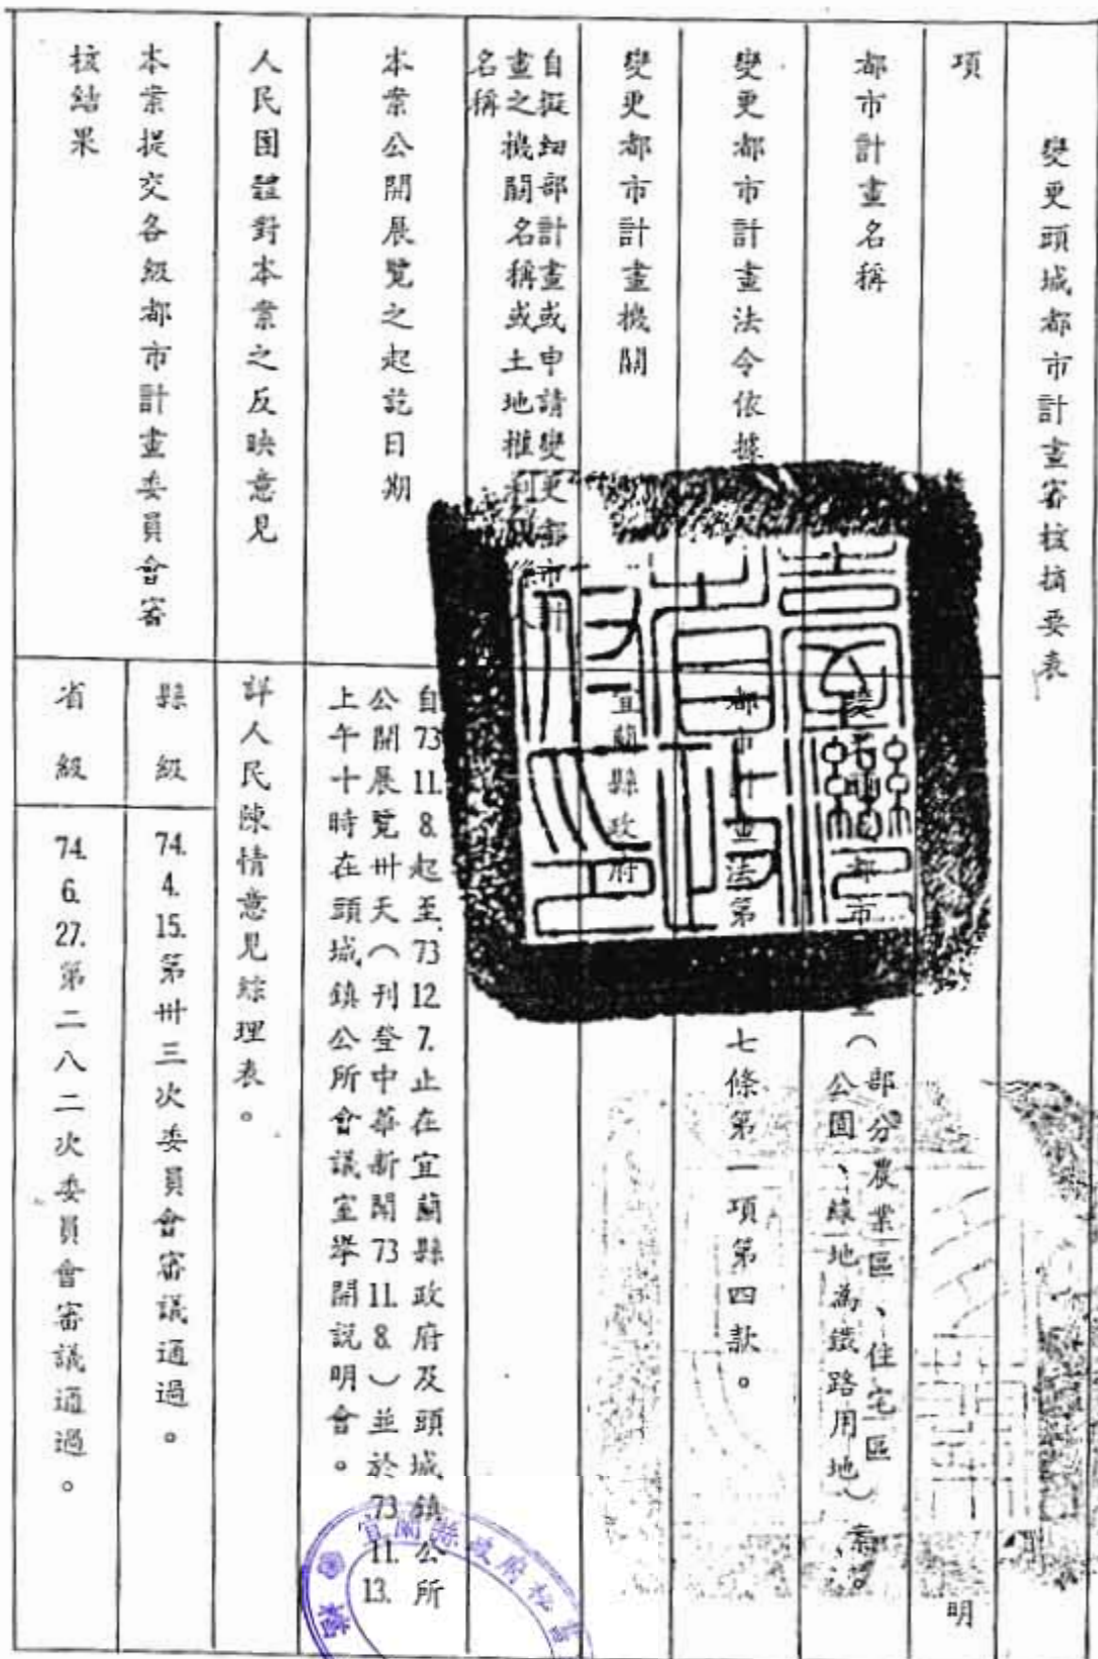 變更頭城都市計畫審核摘要表
項
明
都市計畫名稱
都市
（部分農業區、住宅區、
公園、綠地為鐵路用地）案。
變更都市計畫法令依據
都市計畫法第
七條第一項第四款。
變更都市計畫機關
宜蘭縣政府
自擬細部計畫或申請變更都市計
畫之機關名稱或土地權利關係人
名稱
本案公開展覽之起訖日期
自73 11. 8.起至73 12. 7.止在宜蘭縣政府及頭城鎮公所
公開展覽卅天（刊登中華新聞73 11. 8.）並於73 11. 13.
上午十時在頭城鎮公所會議室舉開説明會。
人民團體對本案之反映意見
詳人民陳情意見綜理表。
本案提交各級都市計畫委員會審
核結果
縣級
74. 4. 15.第卅三次委員會審議通過。
省級
74. 6. 27.第二八二次委員會審議通過。
宜蘭縣政府秘書